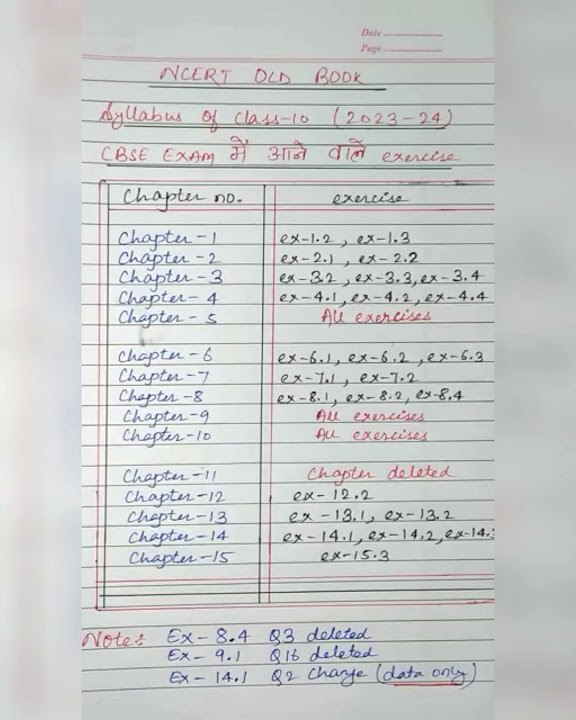 Date
Page
NCERT OLD BOOK
Syllabus of class-10 (2023-24)
CBSE EXAM में आने वाले exercise
Chapter no. exercise
Chapter-1 ex-1.2, ex-1.3
Chapter-2 ex-2.1, ex-2.2
Chapter-3 ex-3.2, ex-3.3, ex-3.4
Chapter-4 ex-4.1, ex-4.2, ex-4.4
Chapter-5 All exercises
Chapter-6 ex-6.1, ex-6.2, ex-6.3
Chapter-7 ex-7.1, ex-7.2
Chapter-8 ex-8.1, ex-8.2, ex-8.4
Chapter-9 All exercises
Chapter-10 All exercises
Chapter-11 Chapter deleted
Chapter-12 ex-12.2
Chapter-13 ex-13.1, ex-13.2
Chapter-14 ex-14.1, ex-14.2, ex-14.
Chapter-15 ex-15.3
Note: Ex-8.4 Q3 deleted
Ex-9.1 Q16 deleted
Ex-14.1 Q2 Change (data only)